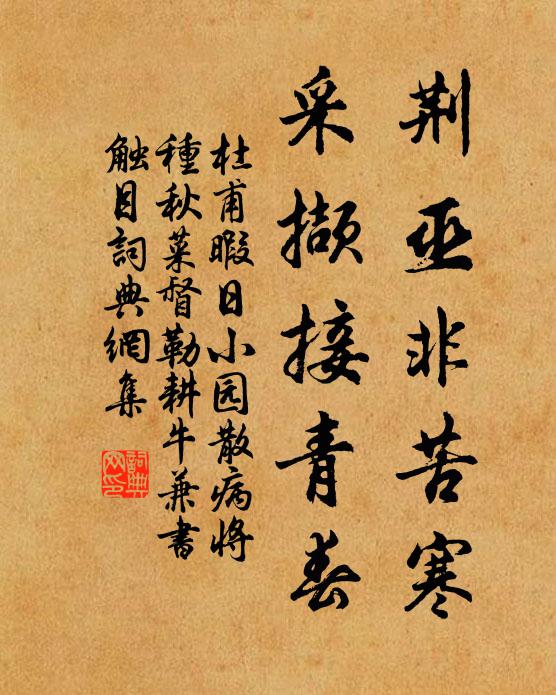 荆巫非苦寒
采撷接青春
杜甫暇日小园散病将
種秋菜督勒耕牛兼書
触目詞典網集
詞典网印